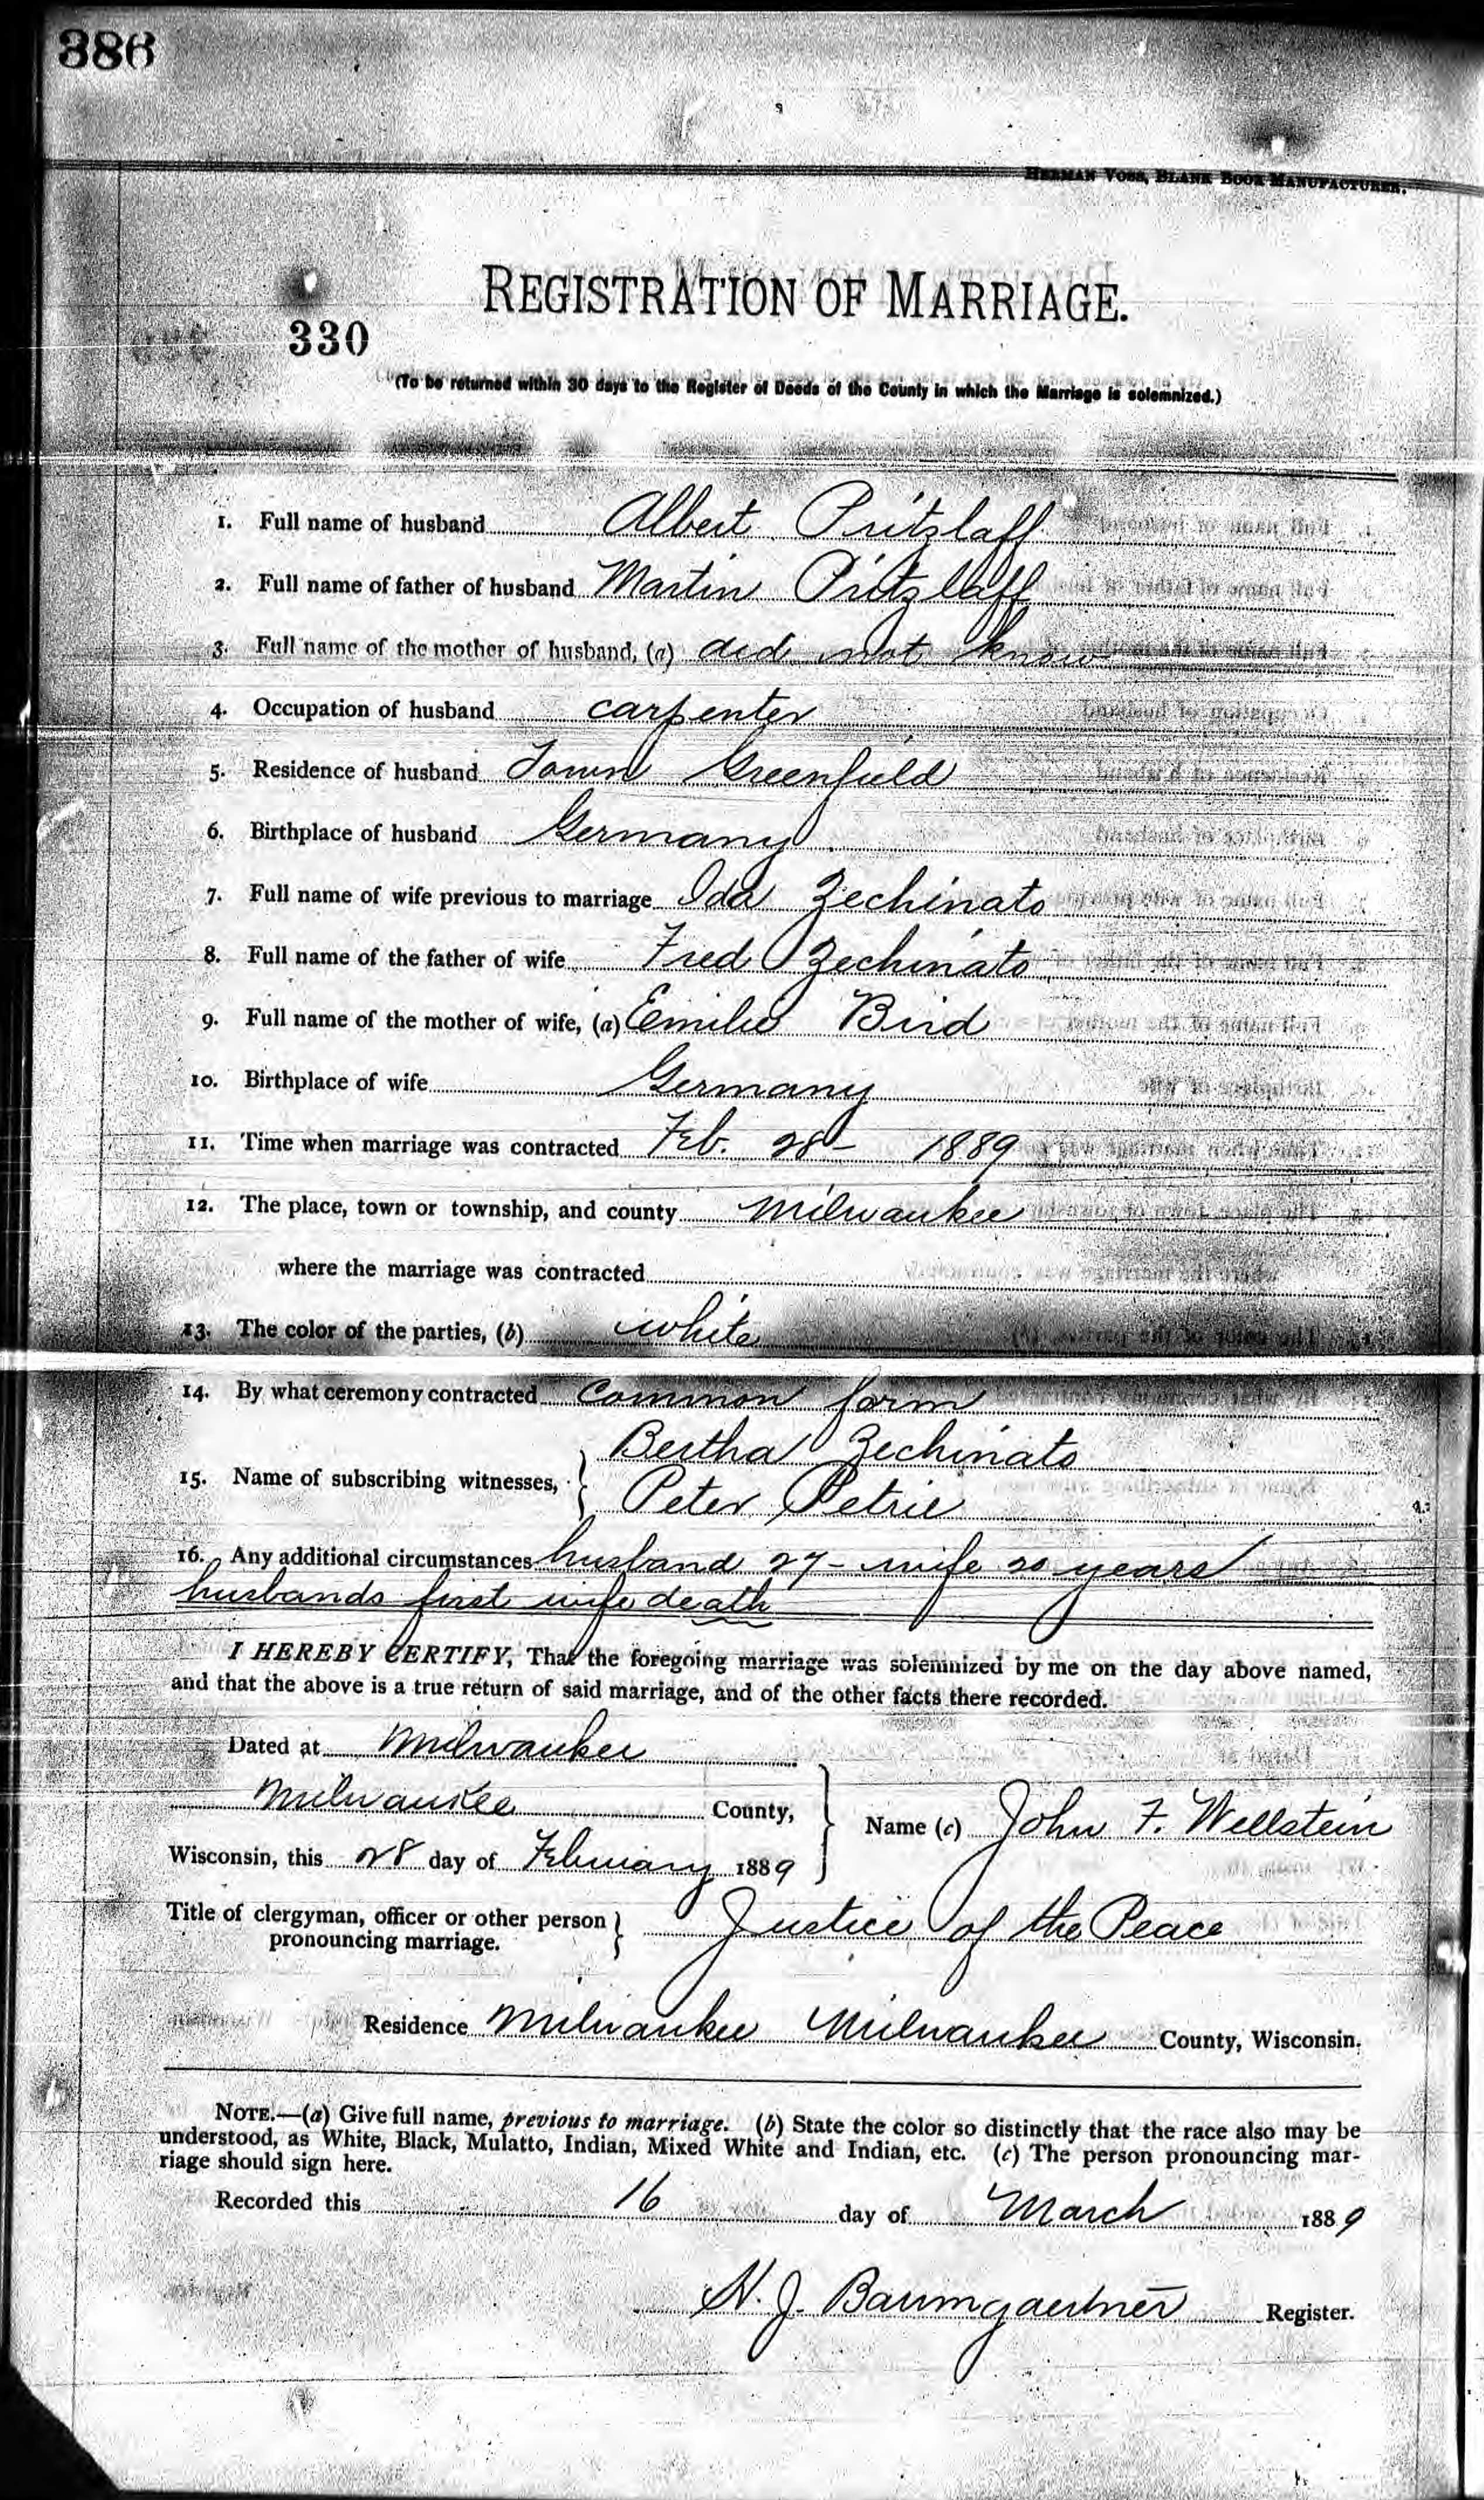 386
HERMAN VOSS, BLANK BOOK MANUFACTURER.
REGISTRATION OF MARRIAGE.
330
(To be returned within 30 days to the Register of Deeds of the County in which the Marriage is solemnized.)
1. Full name of husband Albert Pritzlaff
2. Full name of father of husband Martin Pritzlaff
3. Full name of the mother of husband, (a) did not know
4. Occupation of husband carpenter
5. Residence of husband Town Greenfield
6. Birthplace of husband Germany
7. Full name of wife previous to marriage Ida Zechinato
8. Full name of the father of wife Fred Zechinato
9. Full name of the mother of wife, (a) Emilie Bird
10. Birthplace of wife Germany
11. Time when marriage was contracted Feb. 28- 1889
12. The place, town or township, and county Milwaukee
where the marriage was contracted
13. The color of the parties, (b) white
14. By what ceremony contracted common form
Bertha Zechinato
15. Name of subscribing witnesses,
Peter Petrie
16. Any additional circumstances husband 27- wife 20 years
husbands first wife death
I HEREBY CERTIFY, That the foregoing marriage was solemnized by me on the day above named,
and that the above is a true return of said marriage, and of the other facts there recorded.
Dated at Milwaukee
Milwaukee County,
Name (c) John F. Wellstein
Wisconsin, this 28 day of February 1889
Title of clergyman, officer or other person
pronouncing marriage. Justice of the Peace
Residence Milwaukee Milwaukee County, Wisconsin.
NOTE.—(a) Give full name, previous to marriage. (b) State the color so distinctly that the race also may be
understood, as White, Black, Mulatto, Indian, Mixed White and Indian, etc. (c) The person pronouncing mar-
riage should sign here.
Recorded this 16 day of March 1889
H. J. Baumgaertner Register.